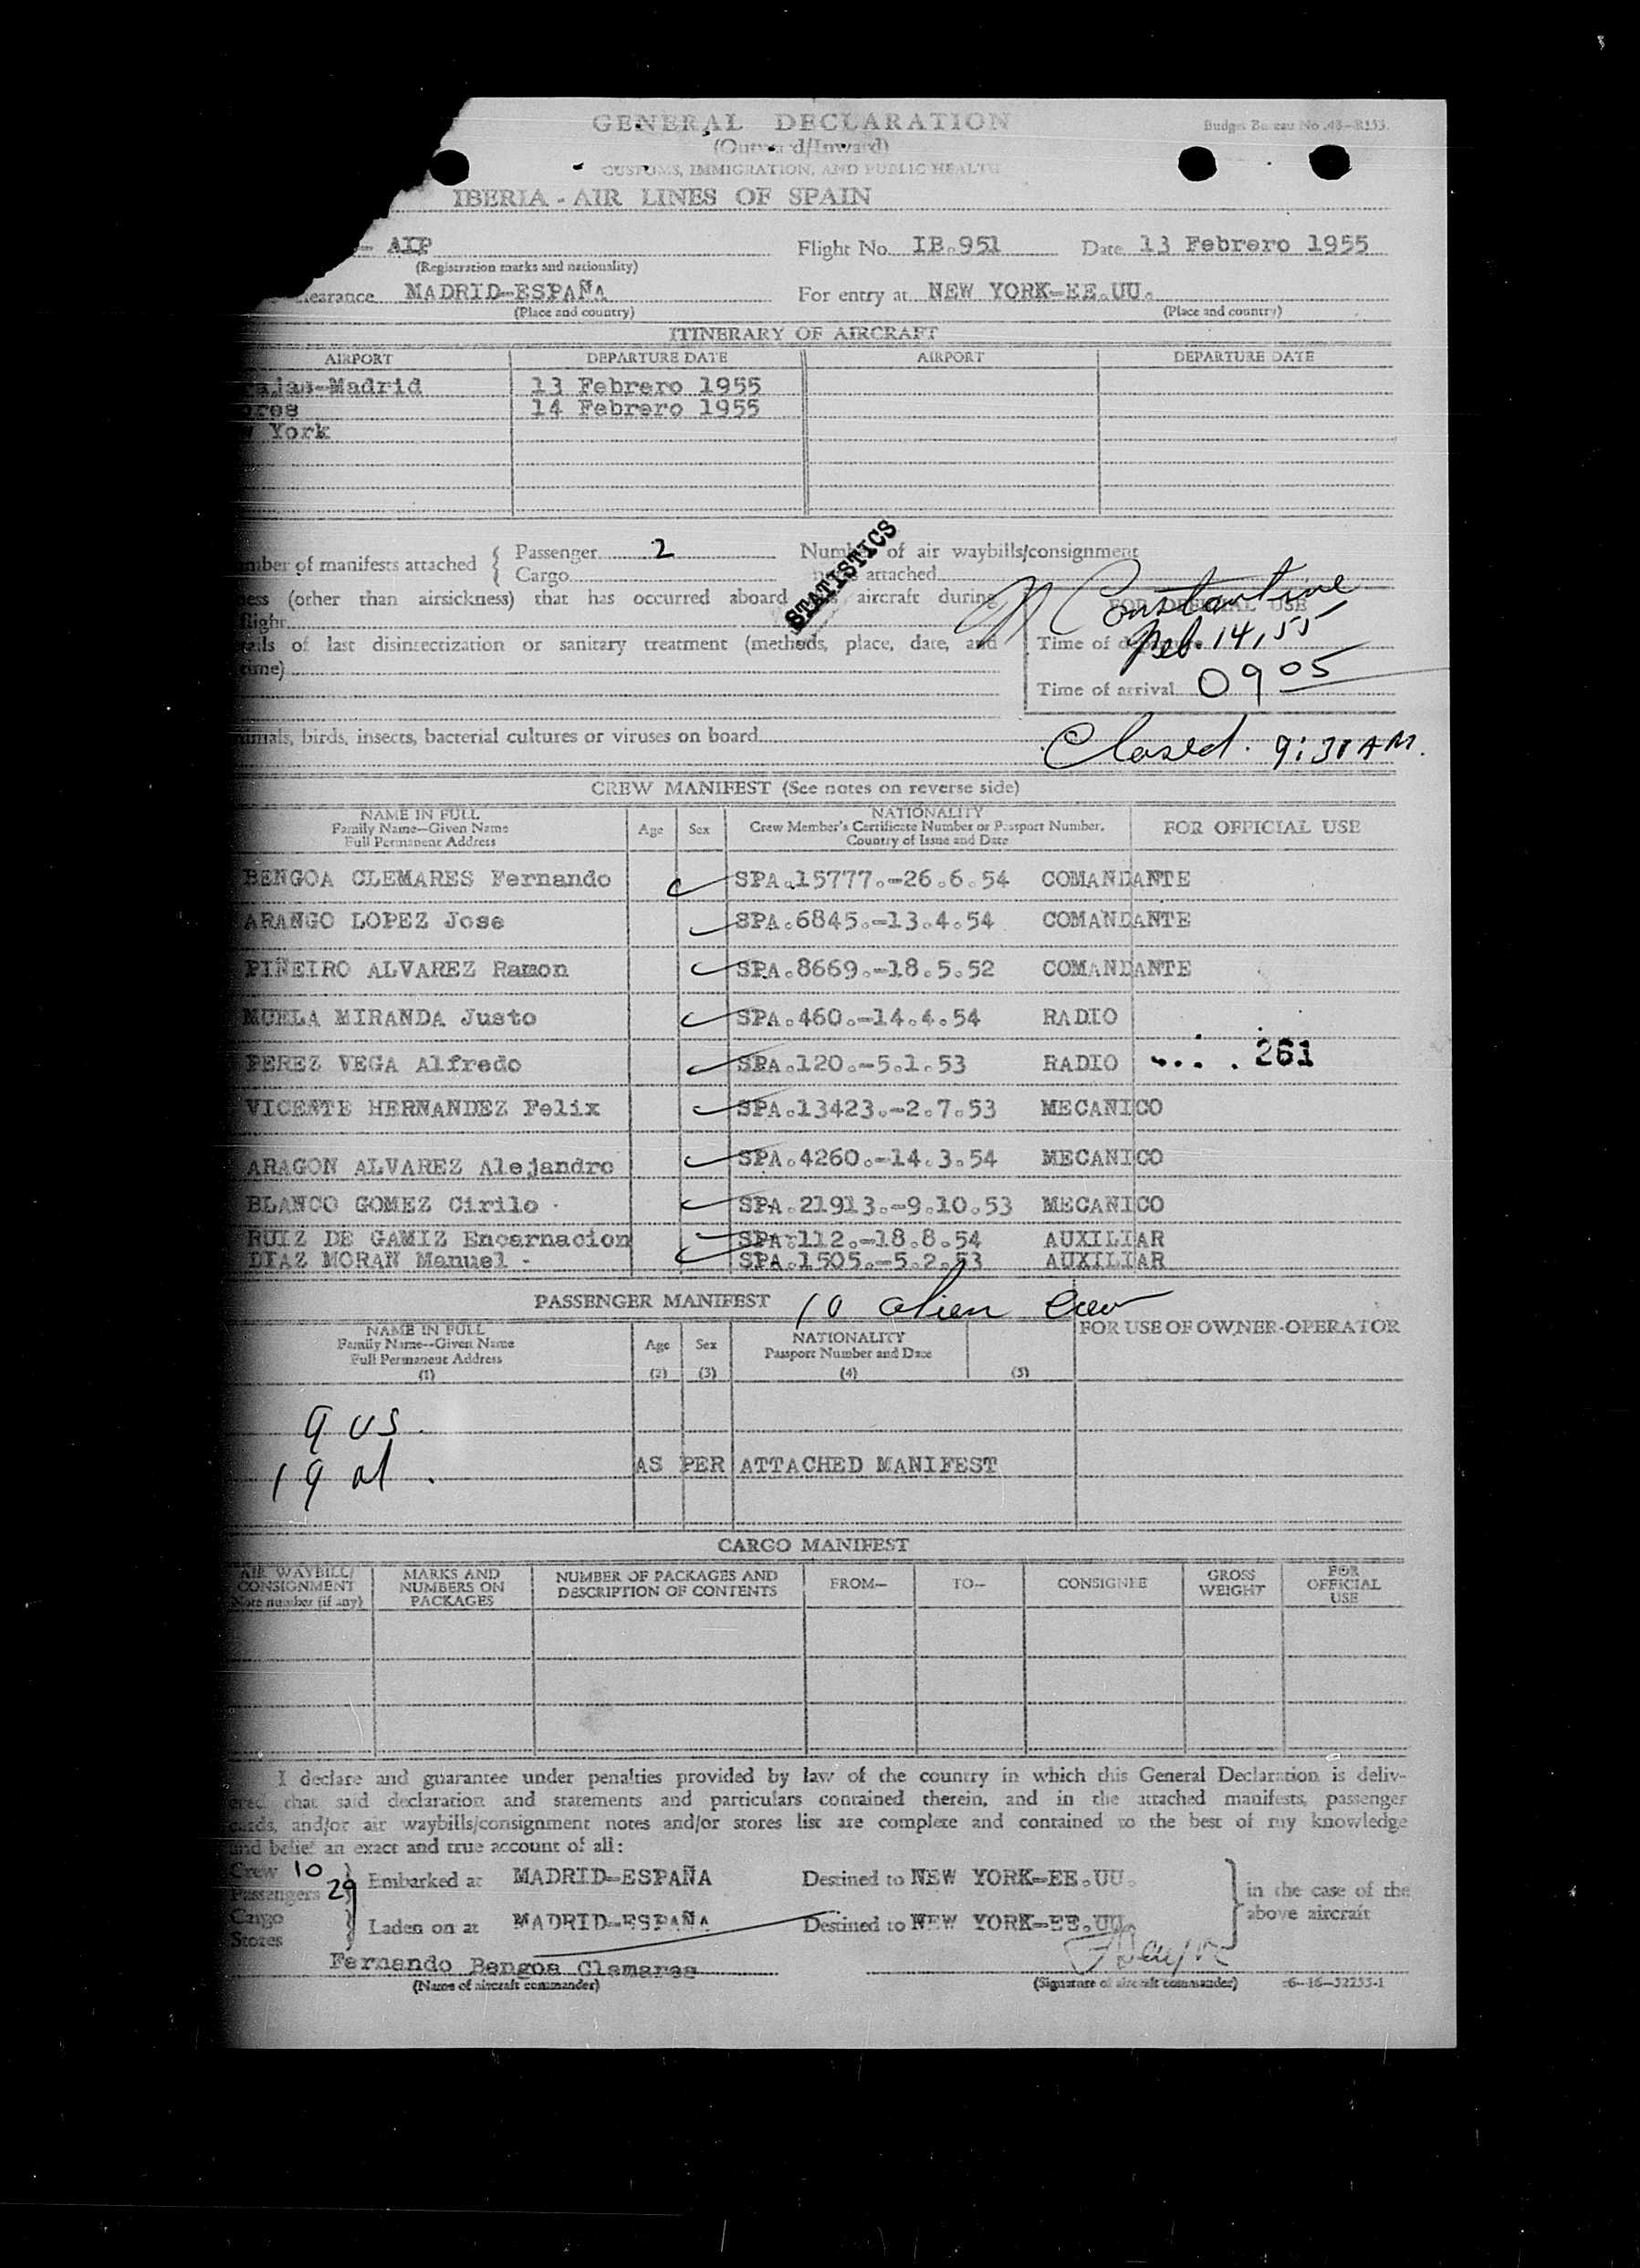 GENERAL DECLARATION
Budget Bureau No. 43-R133.
(Outward/Inward)
CUSTOMS, IMMIGRATION, AND PUBLIC HEALTH
IBERIA - AIR LINES OF SPAIN
- AIP Flight No. IB.951 Date 13 Febrero 1955
(Registration marks and nationality)
earance MADRID-ESPAÑA For entry at NEW YORK-EE.UU.
(Place and country) (Place and country)
ITINERARY OF AIRCRAFT
AIRPORT DEPARTURE DATE AIRPORT DEPARTURE DATE
rajas-Madrid 13 Febrero 1955
ores 14 Febrero 1955
w York
STATISTICS
mber of manifests attached { Passenger 2 Number of air waybills/consignment
Cargo attached
ness (other than airsickness) that has occurred aboard aircraft during
flight
N Constantine
FOR OFFICIAL USE
ails of last disinsectization or sanitary treatment (methods, place, date, and
time)
Time of departure Feb. 14, 55
Time of arrival 0905
nimals, birds, insects, bacterial cultures or viruses on board
Closed. 9:30 AM.
CREW MANIFEST (See notes on reverse side)
NAME IN FULL
Family Name--Given Name
Full Permanent Address
Age Sex
NATIONALITY
Crew Member's Certificate Number or Passport Number,
Country of Issue and Date
FOR OFFICIAL USE
BENGOA CLEMARES Fernando SPA.15777.-26.6.54 COMANDANTE
ARANGO LOPEZ Jose SPA.6845.-13.4.54 COMANDANTE
PIÑEIRO ALVAREZ Ramon SPA.8669.-18.5.52 COMANDANTE
MUELA MIRANDA Justo SPA.460.-14.4.54 RADIO
PEREZ VEGA Alfredo SPA.120.-5.1.53 RADIO 261
VICENTE HERNANDEZ Felix SPA.13423.-2.7.53 MECANICO
ARAGON ALVAREZ Alejandro SPA.4260.-14.3.54 MECANICO
BLANCO GOMEZ Cirilo - SPA.21913.-9.10.53 MECANICO
RUIZ DE GAMIZ Encarnacion SPA.112.-18.8.54 AUXILIAR
DIAZ MORAN Manuel - SPA.1505.-5.2.53 AUXILIAR
PASSENGER MANIFEST 10 alien crew
NAME IN FULL
Family Name--Given Name
Full Permanent Address
(1)
Age
(2)
Sex
(3)
NATIONALITY
Passport Number and Date
(4) (5)
FOR USE OF OWNER-OPERATOR
9 US.
19 al.
AS PER ATTACHED MANIFEST
CARGO MANIFEST
AIR WAYBILL/
CONSIGNMENT
Note number (if any)
MARKS AND
NUMBERS ON
PACKAGES
NUMBER OF PACKAGES AND
DESCRIPTION OF CONTENTS
FROM-- TO-- CONSIGNEE
GROSS
WEIGHT
FOR
OFFICIAL
USE
I declare and guarantee under penalties provided by law of the country in which this General Declaration is deliv-
ered that said declaration and statements and particulars contained therein, and in the attached manifests, passenger
cards, and/or air waybills/consignment notes and/or stores list are complete and contained to the best of my knowledge
and belief an exact and true account of all:
Crew 10
Passengers 29
Embarked at MADRID-ESPAÑA Destined to NEW YORK-EE.UU.
in the case of the
above aircraft
Cargo
Stores
Laden on at MADRID-ESPAÑA Destined to NEW YORK-EE.UU.
Fernando Bengoa Clemares
(Name of aircraft commander) (Signature of aircraft commander) 16-52253-1